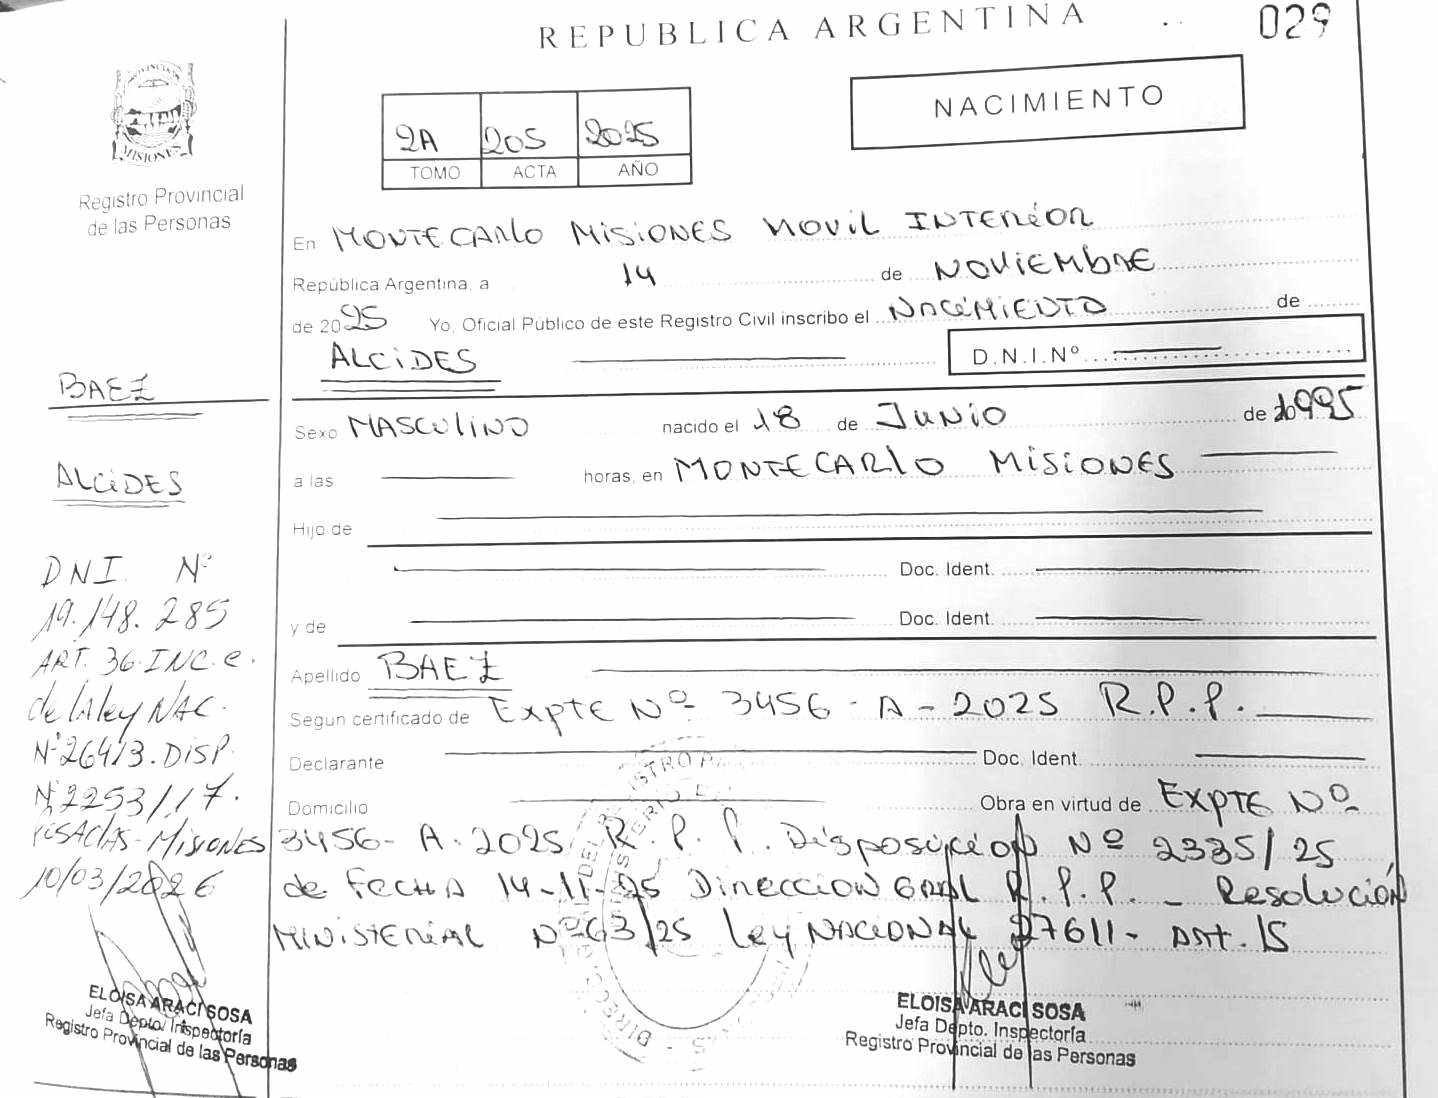 REPUBLICA ARGENTINA
029
PROVINCIA DE
MISIONES
Registro Provincial
de las Personas
2A 205 2025
TOMO ACTA AÑO
NACIMIENTO
En MONTECARLO MISIONES MOVIL INTERIOR
República Argentina, a 14 de NOVIEMBRE
de 2025 Yo, Oficial Público de este Registro Civil inscribo el NACIMIENTO de
ALCIDES D.N.I.Nº
Sexo MASCULINO nacido el 18 de JUNIO de 1995
a las horas, en MONTECARLO MISIONES
Hijo de
Doc. Ident.
y de Doc. Ident.
Apellido BAEZ
Segun certificado de EXPTE Nº 3456-A-2025 R.P.P.
Declarante Doc. Ident.
Domicilio Obra en virtud de EXPTE Nº
3456-A-2025 R.P.P. Disposición Nº 2335/25
de FECHA 14-11-25 DIRECCION GRAL R.P.P. - Resolución
MINISTERIAL Nº 63/25 Ley NACIONAL 27611- ART. 15
ELOISA ARACI SOSA
Jefa Depto. Inspectoría
Registro Provincial de las Personas
BAEZ
ALCIDES
DNI Nº
19.148.285
ART. 36-INC. e.
de la ley NAC.
Nº 26413. DISP.
Nº 2253/17.
POSADAS-MISIONES
10/03/2026
ELOISA ARACI SOSA
Jefa Depto. Inspectoría
Registro Provincial de las Personas